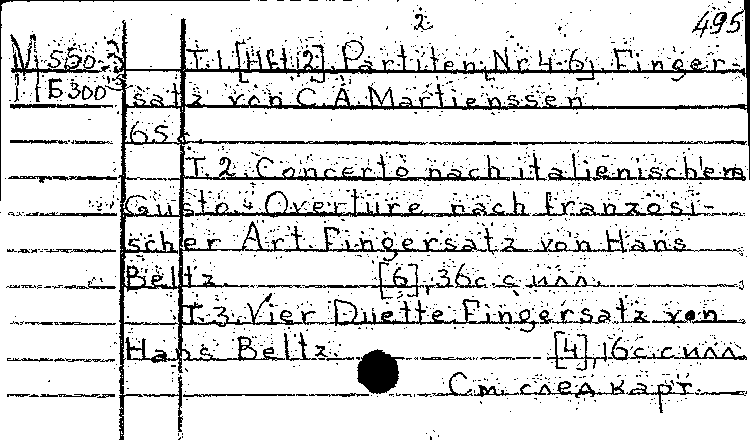 2 495
М 550-3 Т.1.[Hft 2]. Partiten [Nr 4-6]. Finger-
Б300 satz von C. A. Martienssen
65 с.
Т.2. Concerto nach italienischem
Gusto. Overture nach französi-
scher Art. Fingersatz von Hans
Beltz. [6], 36с. с илл.
Т.3. Vier Duette. Fingersatz von
Hans Beltz. [4], 16с. с илл.
См. след. карт.